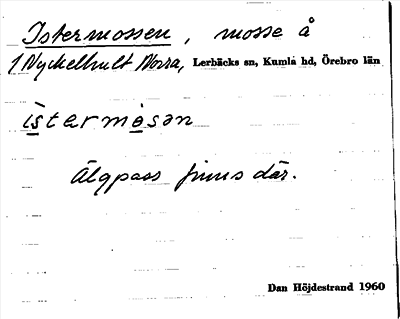 Istermossen, mosse å
1 Nyckelhult Norra, Lerbäcks sn, Kumla hd, Örebro län
ìstermòsən
Älgpass finns där.
Dan Höjdestrand 1960